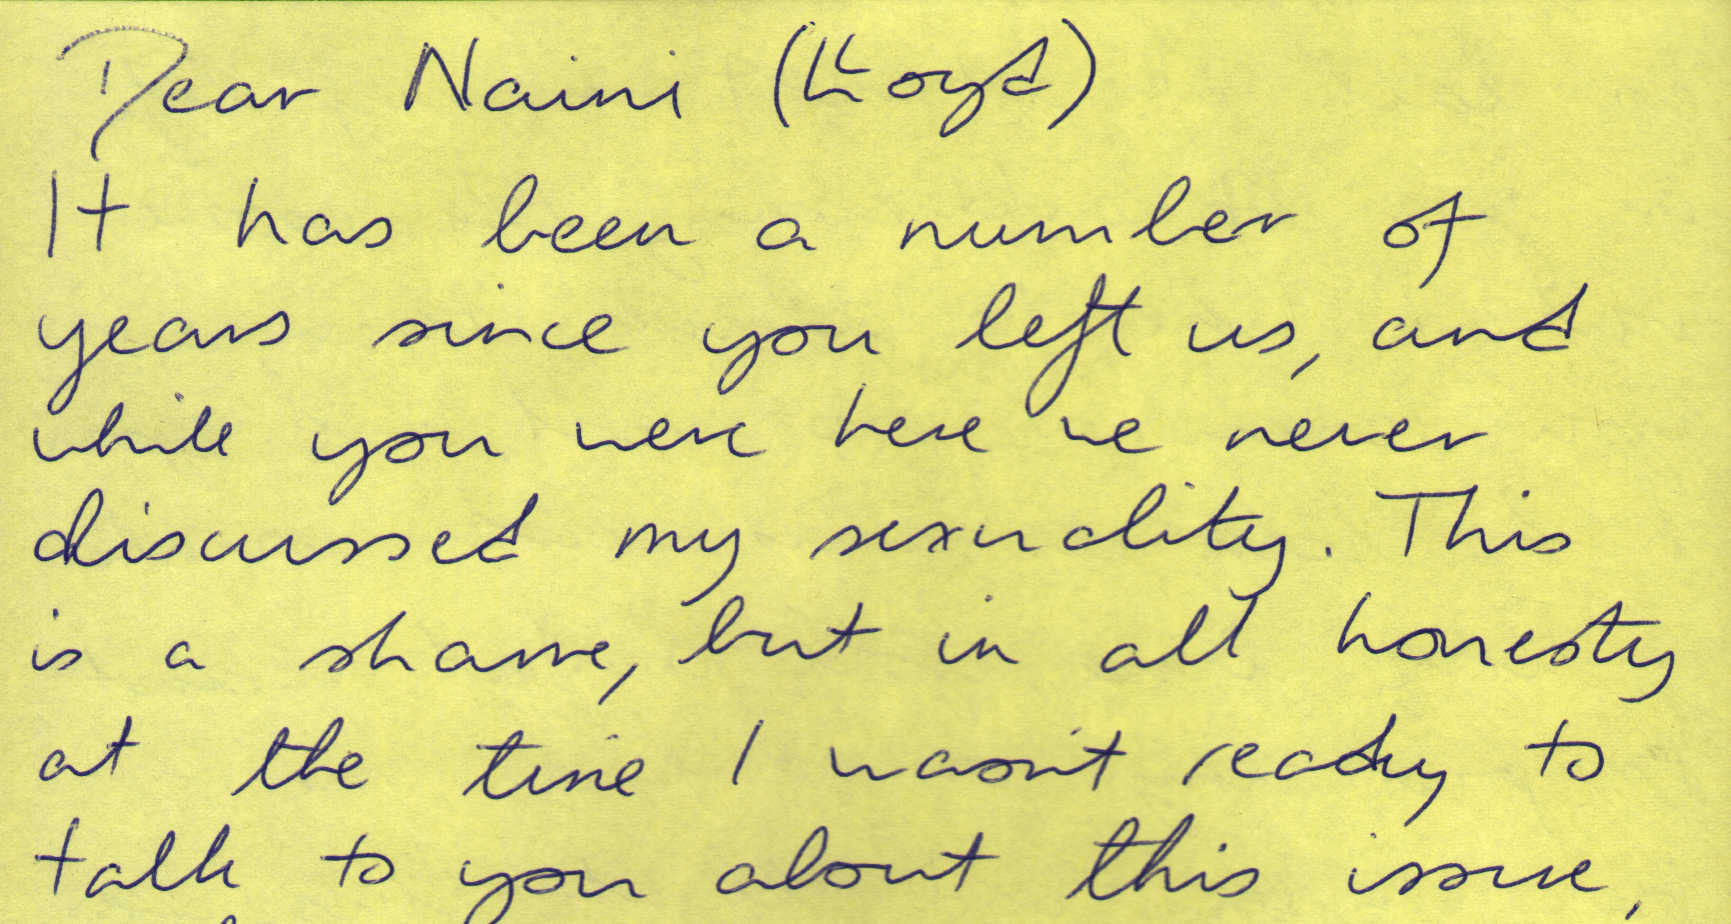 Dear Naini
It has been a number of
years since you left us, and
while you were here we never
discussed my sexuality. This
is a shame, but in all honesty
at the time I wasn't ready to
talk to you about this issue,